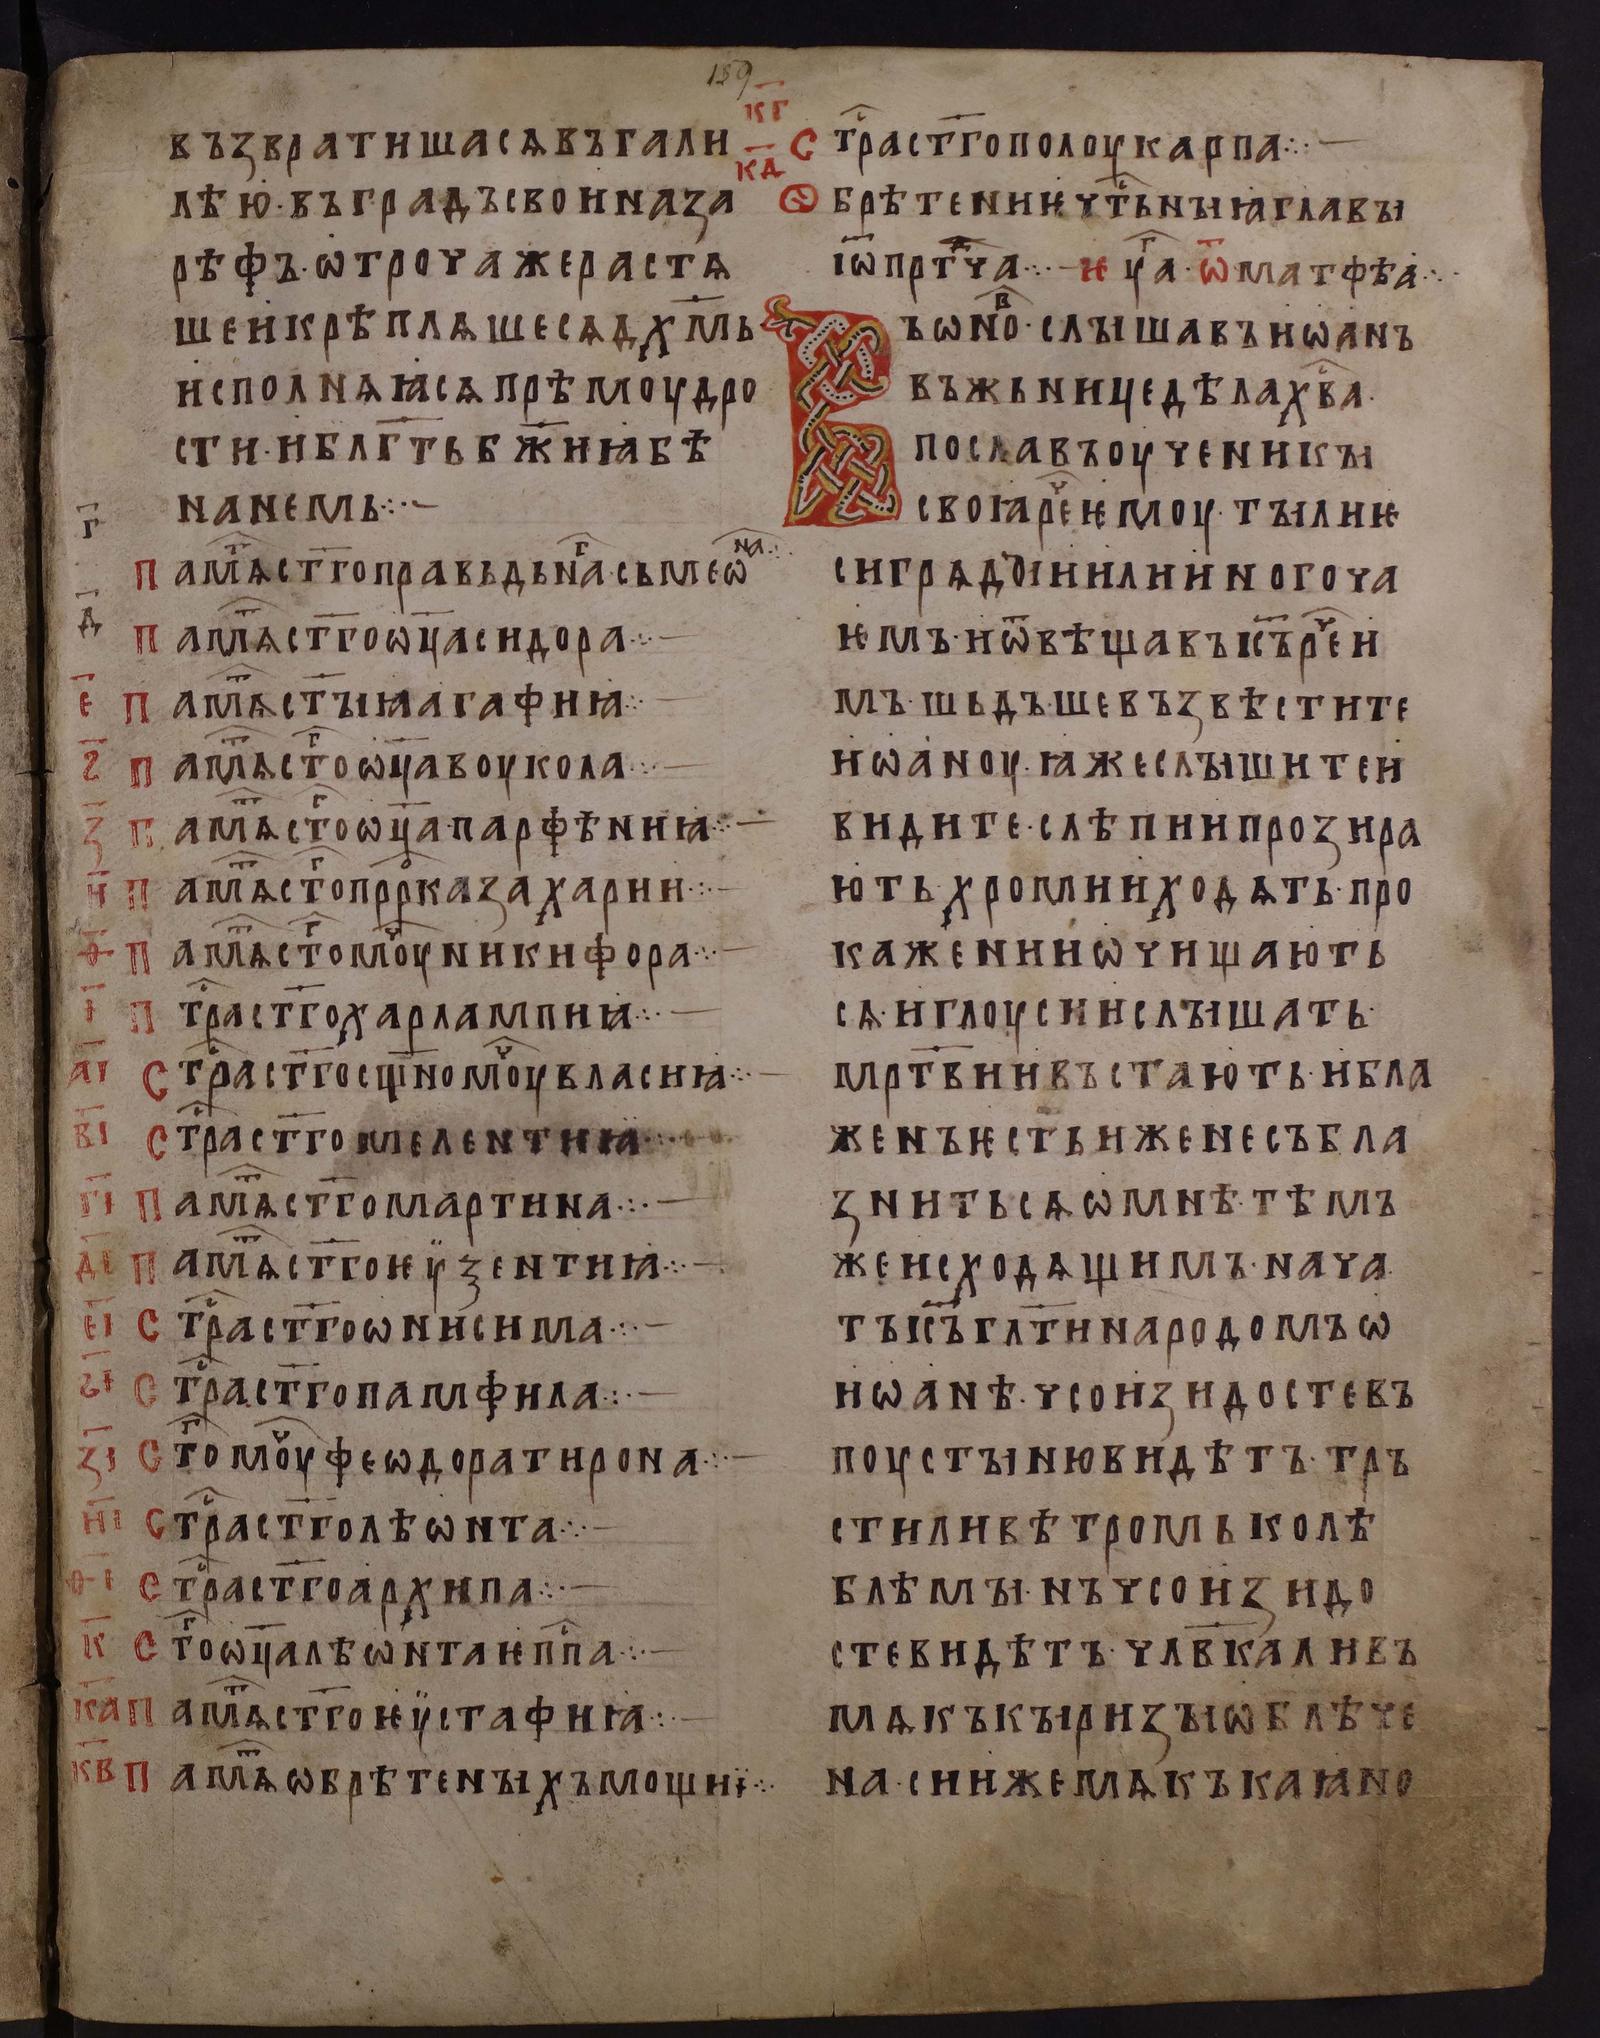 189
възвратишасѧвъгали
лѣю·въградъсвоиназа
рѣфъ·ѡтрочажерастѧ
шеикрѣплѧшесѧдх҃мь
исполнѧꙗсѧпрѣмоудро
сти·иблг҃тьбж҃иꙗбѣ
нанемь჻—
г҃ Памѧⷮст҃гоправьдьнаⷢ·сьмеѡⷩ҇ⷶ჻
д҃ Памѧⷮст҃гоѡц҃асидора჻—
е҃ Памѧⷮст҃ыꙗагафиꙗ჻—
ѕ҃ Памѧⷮстⷢоѡц҃авоукола჻—
з҃ Памѧⷮстⷢоѡц҃а·парфѣниꙗ჻—
и҃ Памѧⷮстⷢопррⷪказахарии჻—
ѳ҃ Памѧⷮстⷢомоⷱуникифора჻—
і҃ Птрⷭаст҃гохарлампиꙗ჻—
аі҃ Стрⷭаст҃госщ҃номоⷱувласиꙗ჻—
ві҃ Стрⷭаст҃гомелентиꙗ჻
гі҃ Памѧⷮст҃гомартина჻—
ді҃ Памѧⷮст҃гоѥѵзентиꙗ჻—
еі҃ Стрⷭаст҃гоѡнисима჻—
ѕі҃ Стрⷭаст҃гопамфила჻—
зі҃ Стⷢомоⷱуфеѡдоратирона჻—
иі҃ Стрⷭаст҃голѣѡнта჻—
ѳі҃ Стрⷭаст҃гоархипа჻—
к҃ Стⷢоѡц҃алѣѡнтаѥпⷭпа჻—
ка҃ Памѧⷮст҃гоѥѵстафиꙗ჻—
кв҃ Памѧⷮѡбрѣтеныхъмощиї჻
кг҃ Стрⷭаст҃гополоукарпа჻—
кд҃ Ѡбрѣтениѥчтⷭьныꙗглавы
іѡ҃прⷣтча჻—ѥуⷢа·ѿматфѣа჻
Въѡноⷡ·слышавъиѡанъ
въжьницедѣлахвⷭа·
пославъоученикы
своꙗреⷱѥмоу·тылиѥ
сигрѧдꙑиилииногоча
ѥмъ·иѿвѣщавъіс҃ъреⷱи
мъ·шьдъшевъзвѣстите
иѡаноу·ꙗжеслышитеи
видите·слѣпиипрозира
ють·хромииходѧть·про
кажениѡчищають
сѧ·иглоусиислышать·
мрт҃виивъстають·ибла
женъѥстьиженесъбла
знитьсѧѡмнѣ·тѣмъ
жеисходѧщимъ·нача
тъіс҃ъглт҃инародомъѡ
иѡанѣ·чсоиздостевъ
поустынювидѣтъ·тръ
стиливѣтромьколѣ
блѣмы·нъчсоизидо
стевидѣтъ·члв҃каливъ
мѧкъкырнзыѡблѣче
на·сиижемѧкъкаꙗно